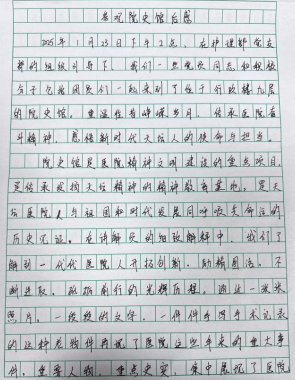 参观院史馆后感
2025年1月23日下午2点，在护理部党支
部的组织引导下，我们一些党员同志和积极
分子包括团员们一起来到了位于行政楼九层
的院史馆，重温往昔峥嵘岁月，传承医院奋
斗精神，感悟新时代大坛人的使命与担当。
院史馆是医院精神文明建设的重点项目，
是传承发扬天坛精神的精神教育基地，是天
坛医院与祖国和时代发展同呼吸共命运的
历史见证。在讲解员的细致解释中，我们了
解到一代代医院人开拓创新、勤精图治、不
断进取、砥砺前行的光辉历程。通过一张张
照片，一段段的文字，一件件手写手术记录
的这种老物件再现了医院这些年来的重大事
件、重要人物、重点史实，集中展现了医院